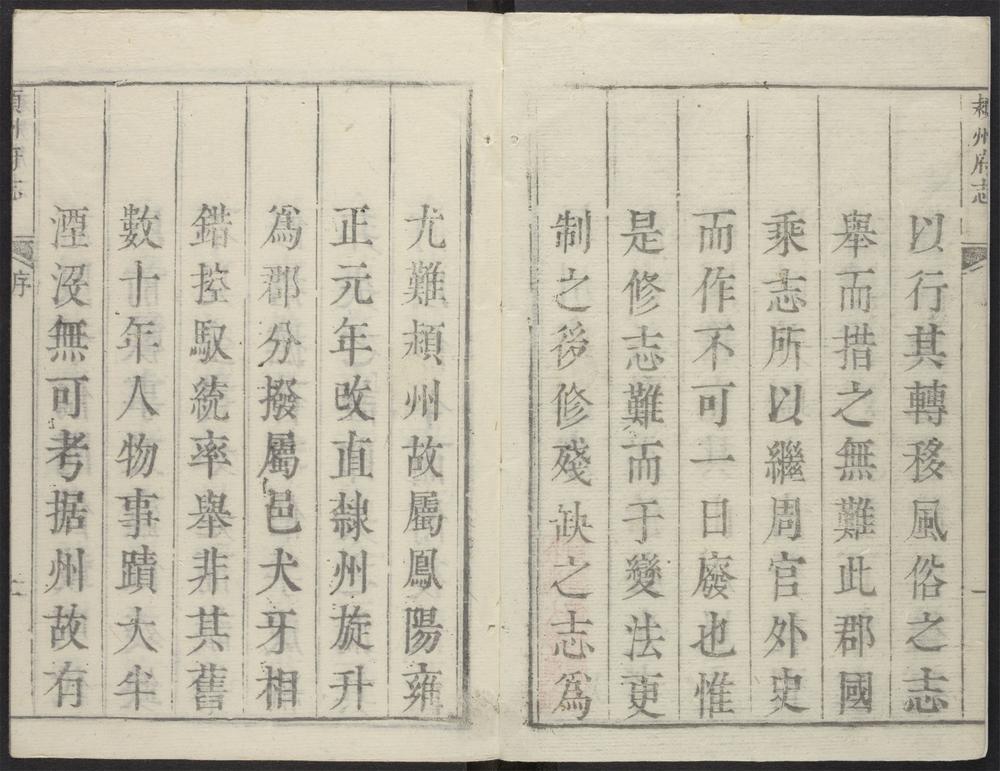 潁州府志
以行其轉移風俗之志
舉而措之無難此郡國
乘志所以繼周官外史
而作不可一日廢也惟
是修志難而于變法更
制之後修殘缺之志爲
尤難潁州故屬鳳陽雍
正元年改直隸州旋升
爲郡分撥屬邑犬牙相
錯控馭統率舉非其舊
數十年人物事蹟大半
湮沒無可考据州故有
潁州府志
序